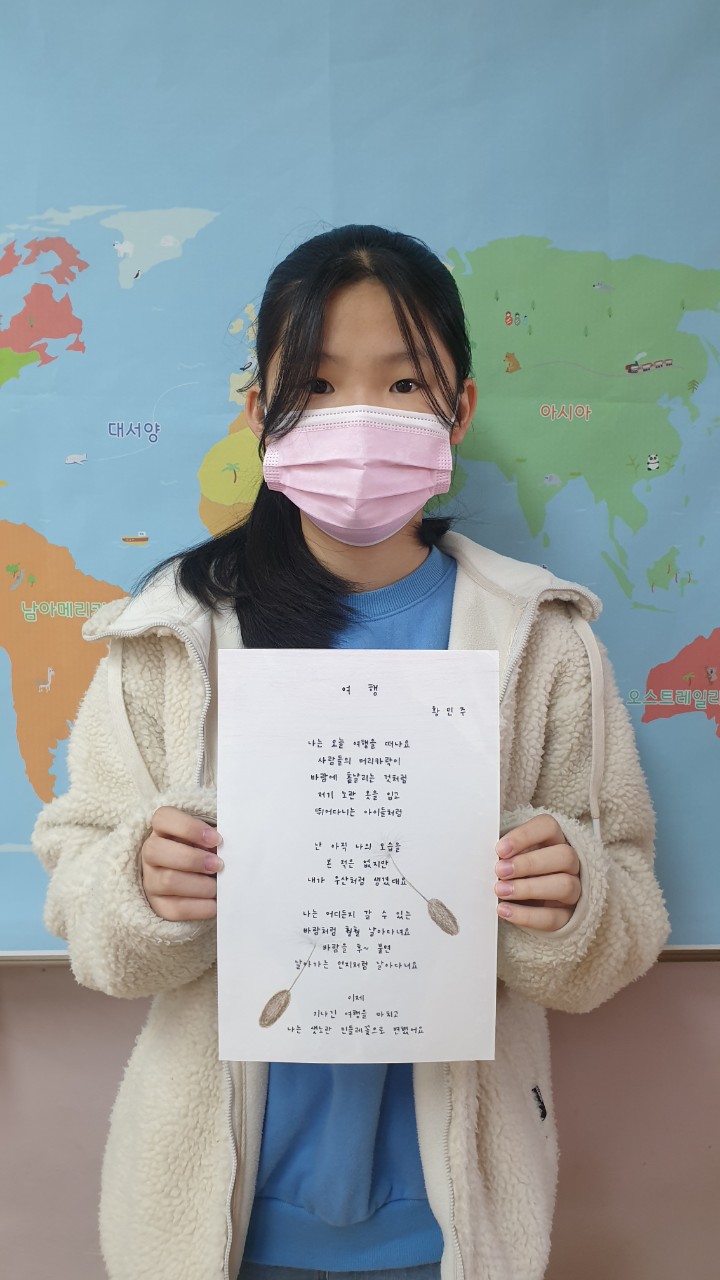 대서양
아시아
남아메리카
오스트레일리
여 행
황 민 주
나는 오늘 여행을 떠나요
사람들의 머리카락이
바람에 흩날리는 것처럼
저기 노란 옷을 입고
뛰어다니는 아이들처럼
난 아직 나의 모습을
본 적은 없지만
내가 우산처럼 생겼대요
나는 어디든지 갈 수 있는
바람처럼 훨훨 날아다녀요
바람을 후~ 불면
날아가는 먼지처럼 날아다녀요
이제
기나긴 여행을 마치고
나는 샛노란 민들레꽃으로 변했어요